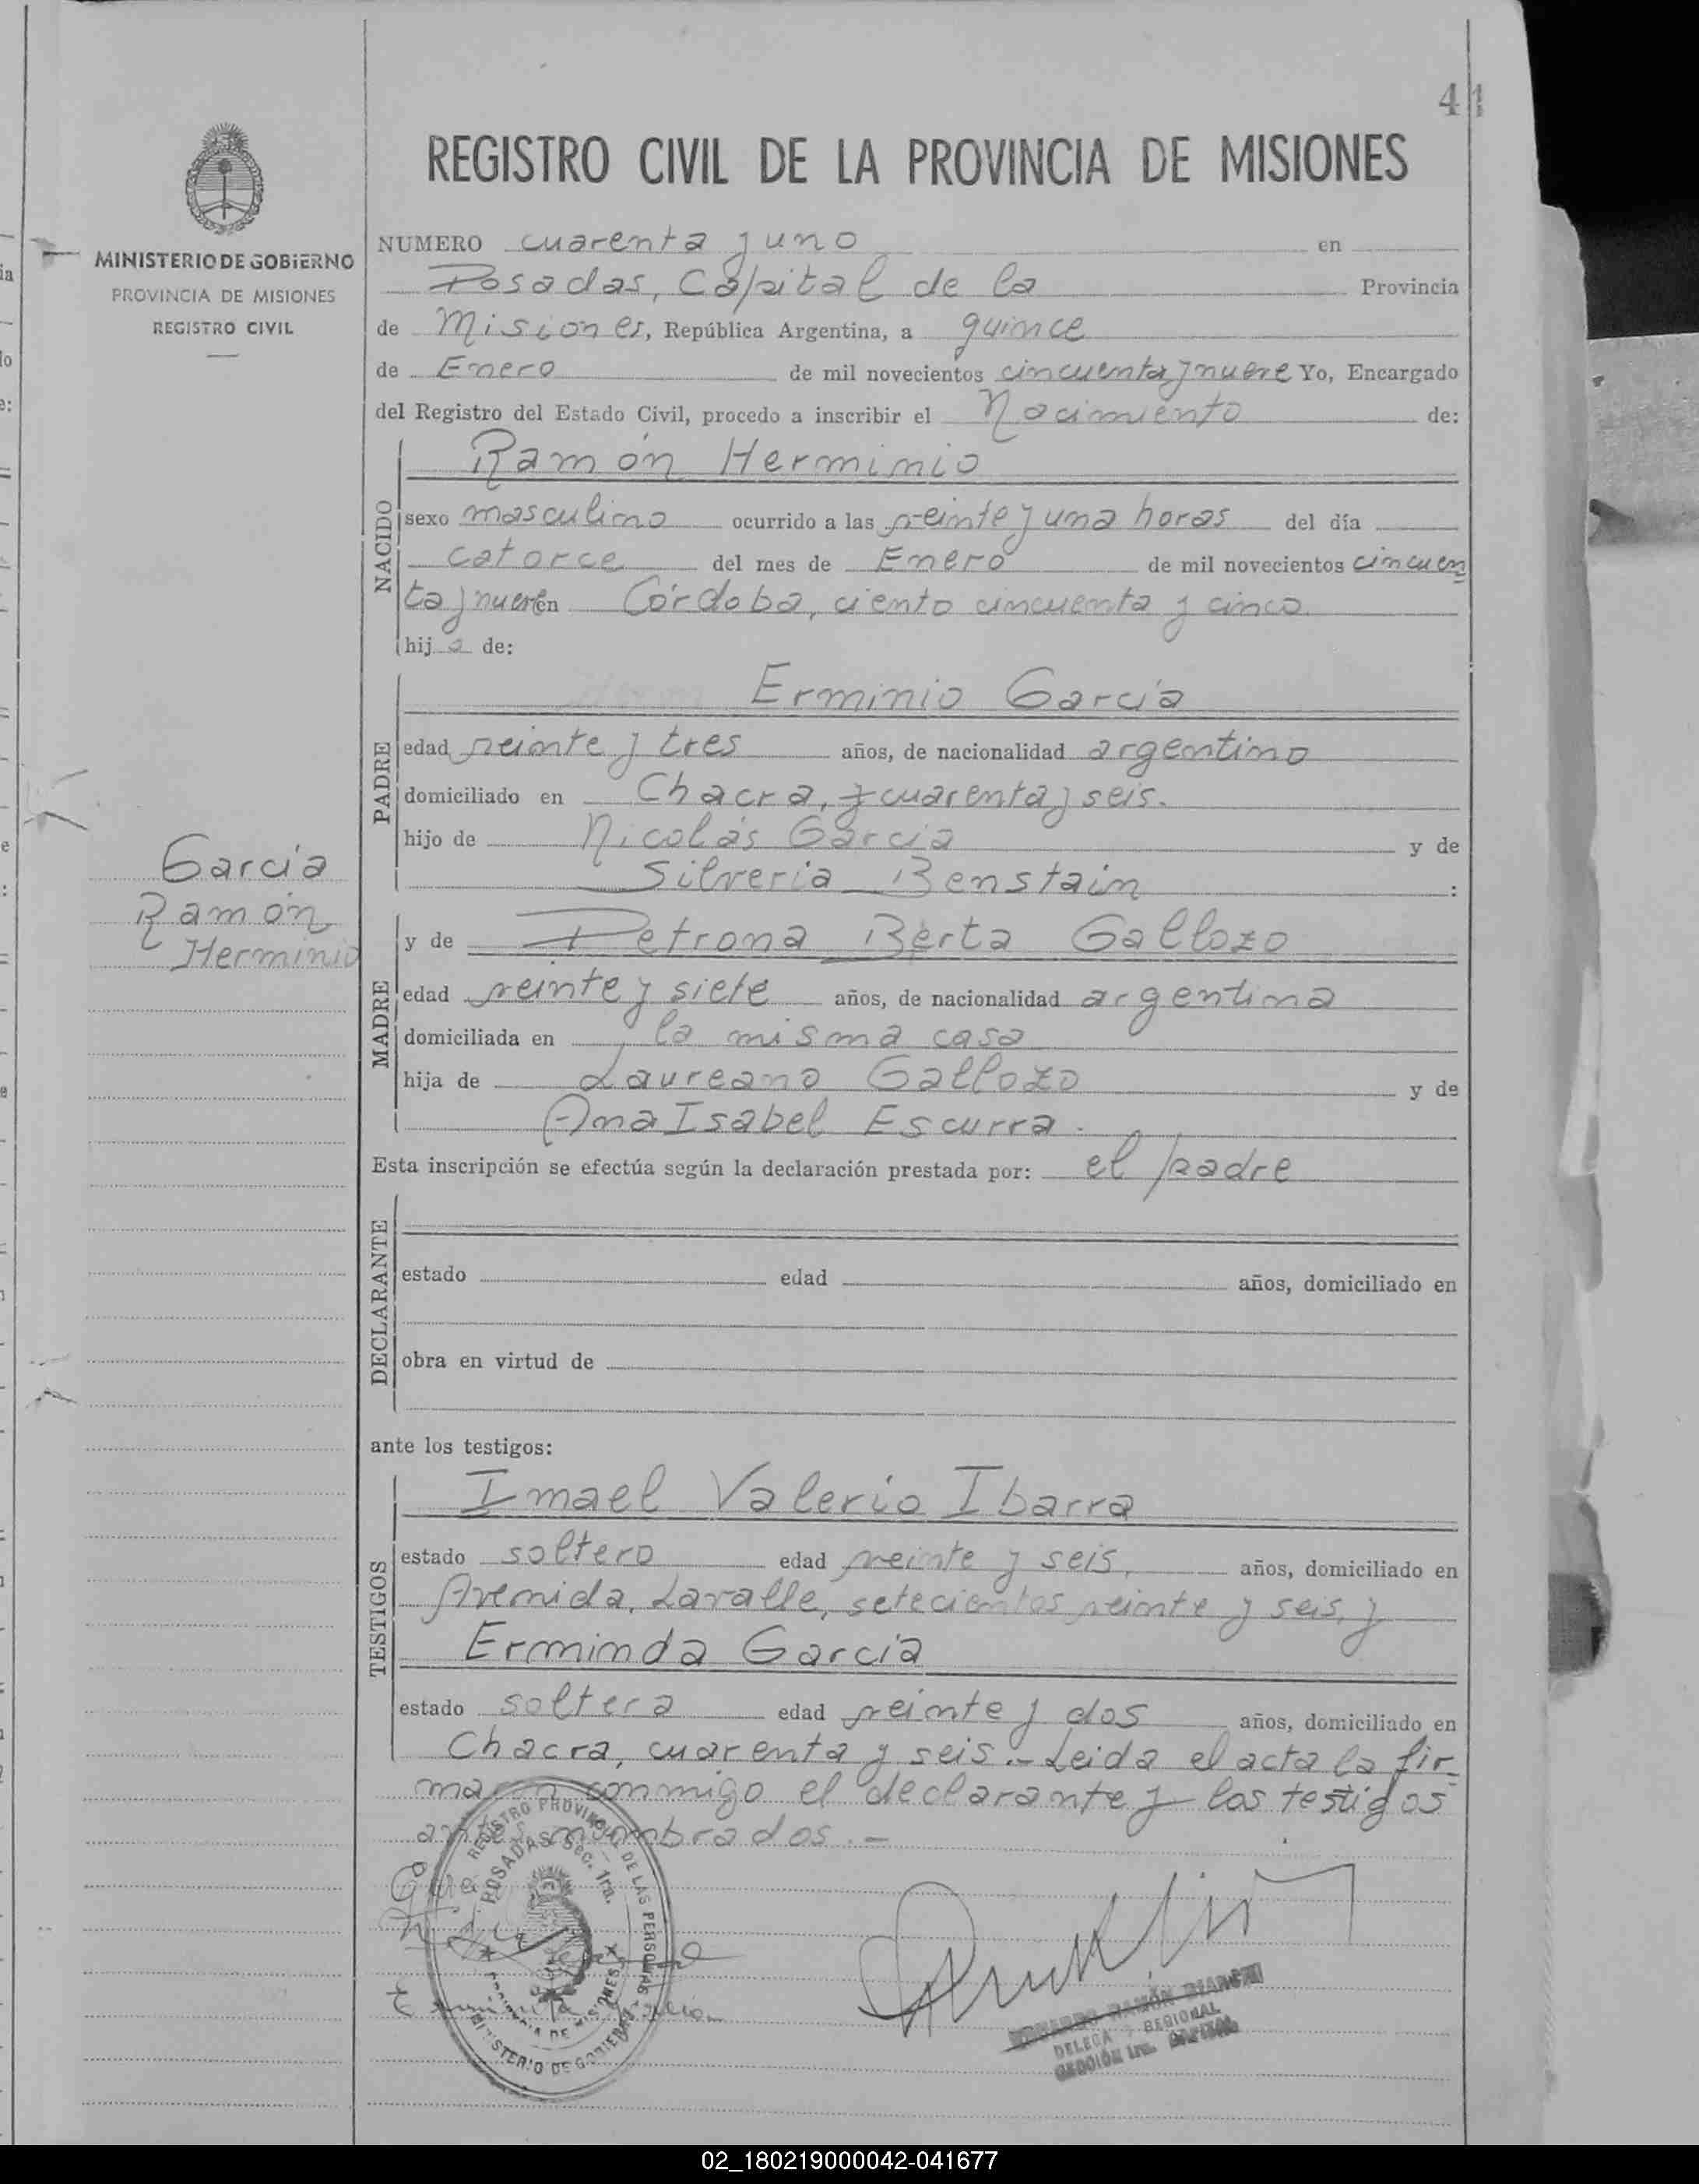 41
REGISTRO CIVIL DE LA PROVINCIA DE MISIONES
MINISTERIO DE GOBIERNO
PROVINCIA DE MISIONES
REGISTRO CIVIL
NUMERO cuarenta y uno en
Posadas, Capital de la Provincia
de Misiones, República Argentina, a quince
de Enero de mil novecientos cincuenta y nueve Yo, Encargado
del Registro del Estado Civil, procedo a inscribir el Nacimiento de:
NACIDO
Ramón Herminio
sexo masculino ocurrido a las veinte y una horas del día
catorce del mes de Enero de mil novecientos cincuen
ta y nueve en Córdoba, ciento cincuenta y cinco
hijo de:
PADRE
Erminio García
edad veinte y tres años, de nacionalidad argentino
domiciliado en Chacra, cuarenta y seis.
hijo de Nicolás García y de
Silveria Benstain :
García
Ramón
Herminio
MADRE
y de Petrona Berta Gallozo
edad veinte y siete años, de nacionalidad argentina
domiciliada en la misma casa
hija de Laureano Gallozo y de
Ana Isabel Escurra.
Esta inscripción se efectúa según la declaración prestada por: el padre
DECLARANTE
estado edad años, domiciliado en
obra en virtud de
ante los testigos:
TESTIGOS
Imael Valerio Ibarra
estado soltero edad veinte y seis, años, domiciliado en
Avenida, Lavalle, setecientos veinte y seis, y
Erminda García
estado soltera edad veinte y dos años, domiciliado en
Chacra, cuarenta y seis.- Leida el acta la fir-
maron conmigo el declarante y los testigos
antes nombrados.-
REGISTRO PROVINCIAL DE LAS PERSONAS
POSADAS Sec. 1ra.
PROVINCIA DE MISIONES
MINISTERIO DE GOBIERNO
RAMÓN BIANCHI
REGIONAL
SECCIÓN 1ra. CAPITAL
02_180219000042-041677